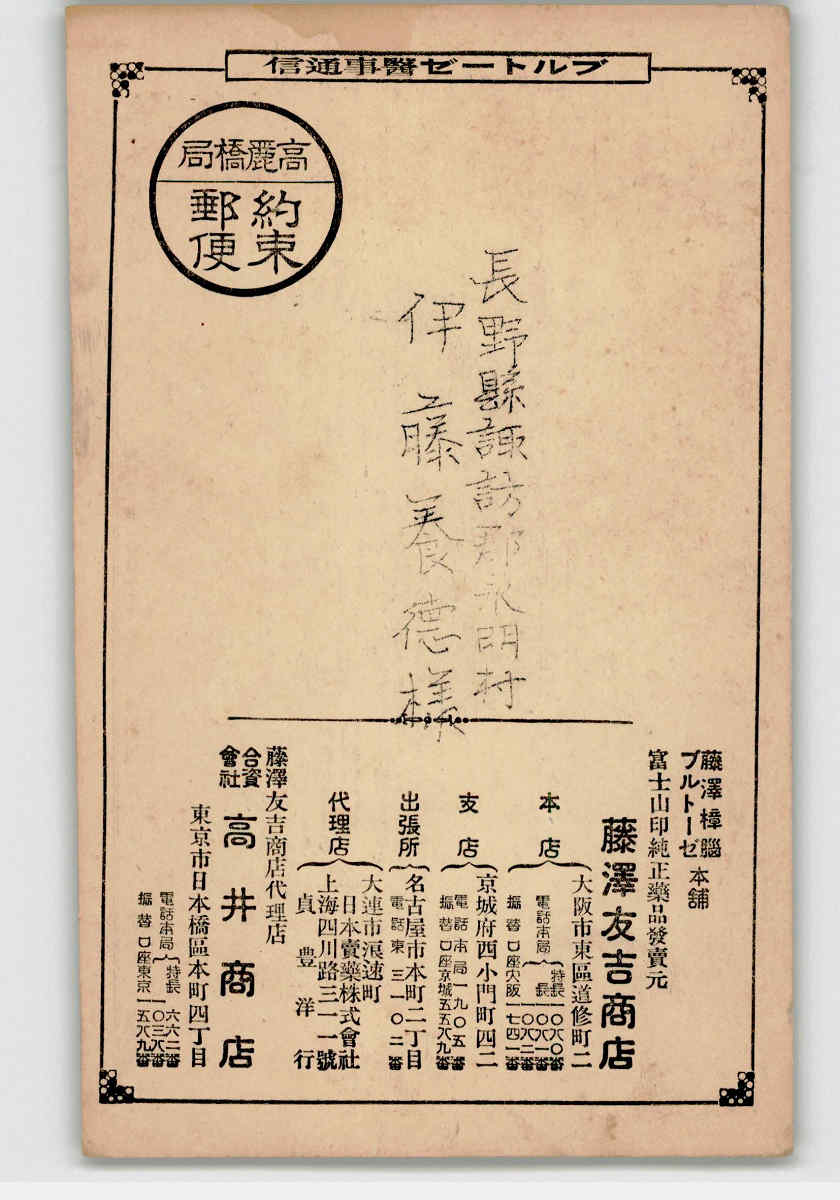 信通事醫ゼートルブ
局橋麗高
約束
郵便
長野縣諏訪郡永明村
伊藤養德様
藤澤樟腦
ブルトーゼ
本舗
富士山印純正藥品發賣元
藤澤友吉商店
本店
大阪市東區道修町二
電話本局
特長一〇六〇番
長一〇六一番
一〇六二番
振替口座大阪一七四一番
支店
京城府西小門町四二
電話本局一九〇五番
振替口座京城五五八九番
出張所
名古屋市本町二丁目
電話東三一〇二番
代理店
大連市浪速町
日本賣藥株式會社
上海四川路三一一號
貞豊洋行
藤澤友吉商店代理店
合資
會社
高井商店
東京市日本橋區本町四丁目
電話本局
特長六六二番
一〇三八番
振替口座東京一五八九番